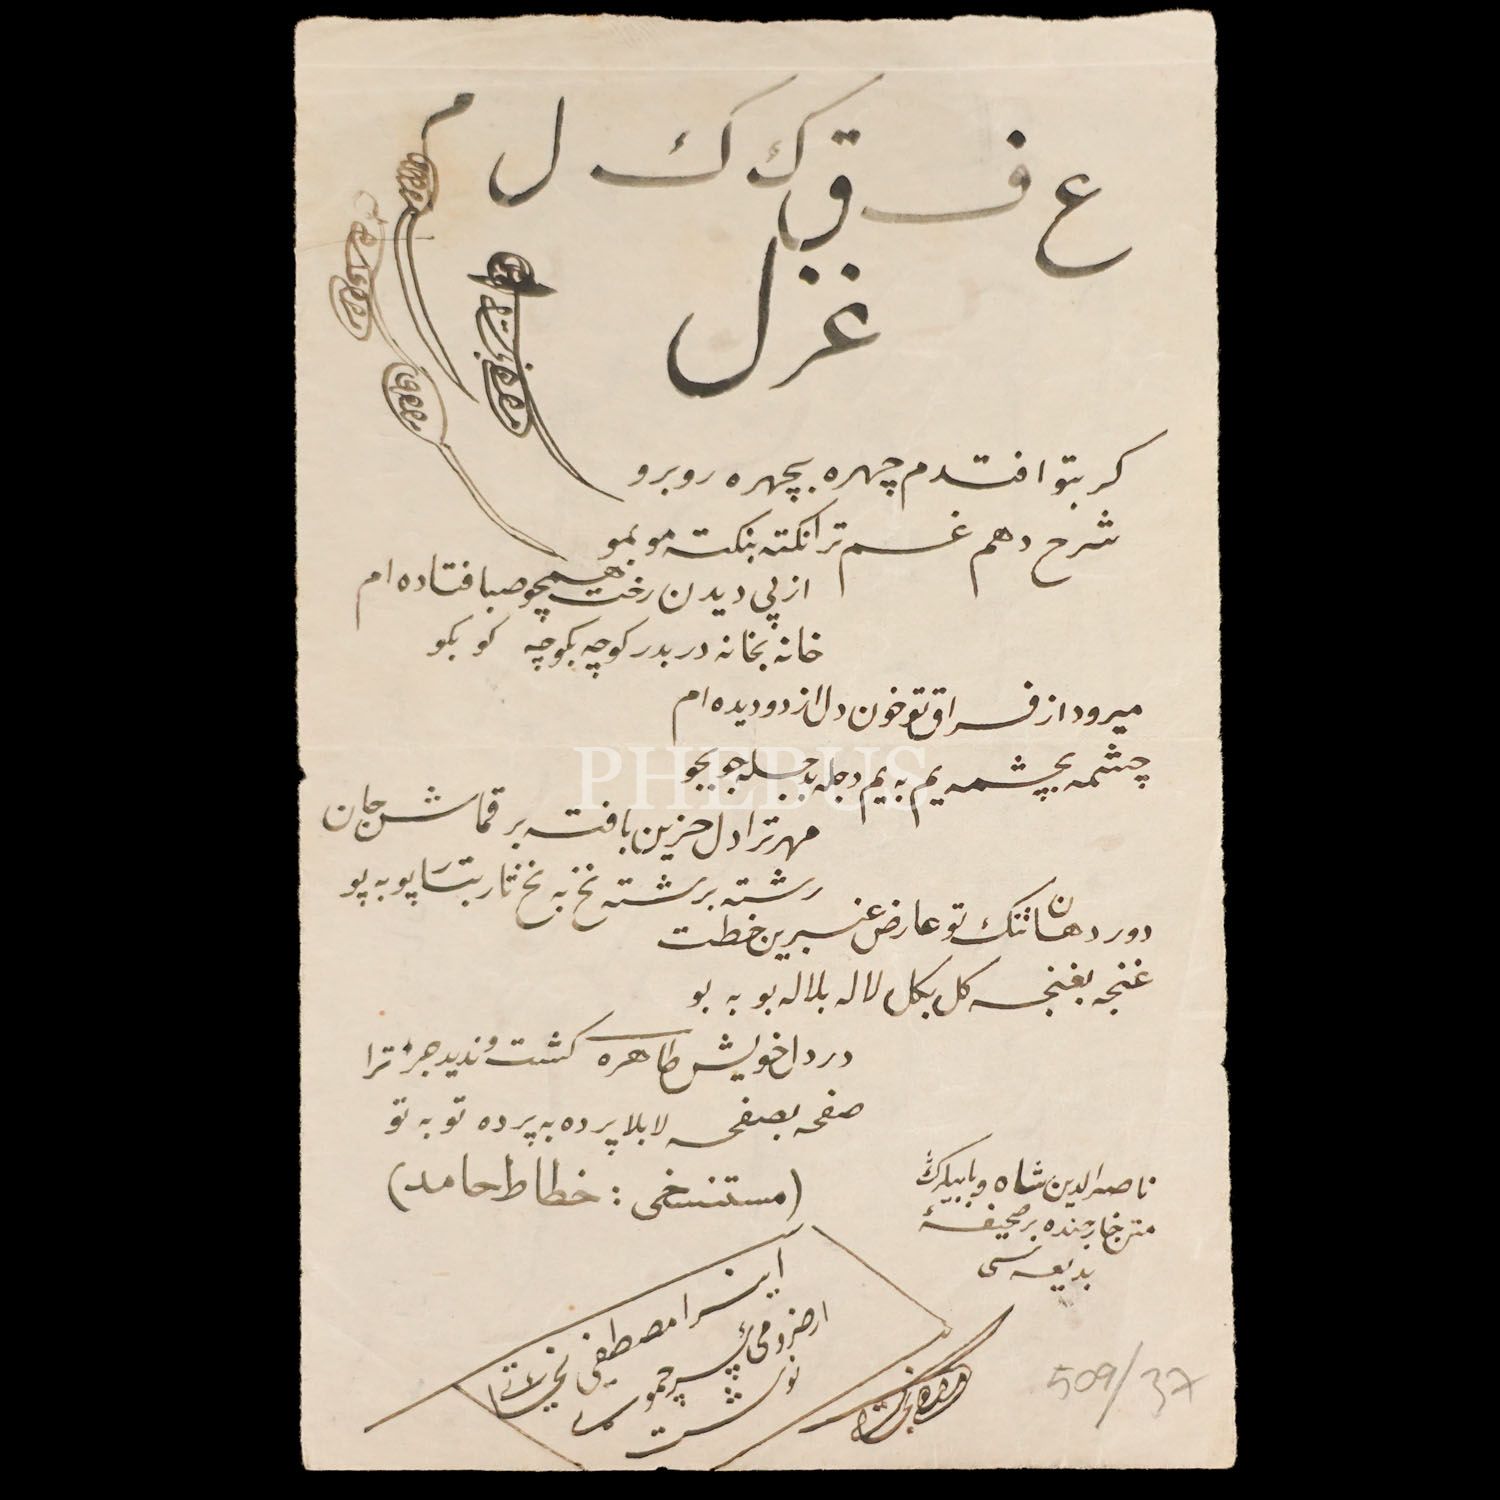 ع ف ق ك ك ل م
غزل
كر بتو افتدم چهره بچهره روبرو
شرح دهم غم ترا نكته بنكته مو بمو
از پی دیدن رخت همچو صبا فتاده ام
خانه بخانه در بدر كوچه بكوچه كو بكو
میرود از فراق تو خون دل از دو دیده ام
چشمه بچشمه یم به یم دجله بدجله جو بجو
مهر ترا دل حزین بافته بر قماش جان
رشته برشته نخ به نخ تار بتار پو به پو
دور دهان تنك تو عارض عنبرین خطت
غنچه بغنچه كل بكل لاله بلاله بو به بو
در دل خویش طاهره كشت و ندید جز ترا
صفحه بصفحه لا بلا پرده به پرده تو به تو
(مستنسخی : خطاط حامد)
ناصرالدین شاه و بابیلرك
بر صحیفهٔ
بدیعه سی
این را مصطفی
ارضرومی
نوشت
PHEBUS
509/37